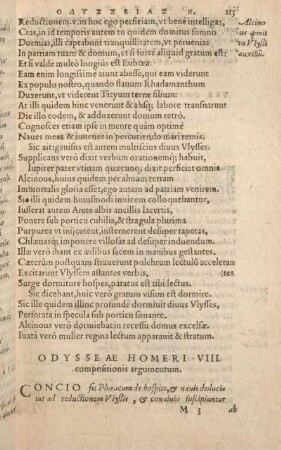 ΟΔΥΣΣΕΙΑΣ Η.
Reductionem.v.in hoc ego perficiam, vt bene intelligas,
Cras, in id temporis autem tu quidem domitus somno
Dormias, illi captabunt tranquillitatem, vt peruenias
In patriam tuam & domum, et si fuerit aliquid gratum est
Et si valde multò longius est Eubœa.
Eam enim longissimè aiunt abesse, qui eam viderunt
Ex populo nostro, quando flauum Rhadamanthum
Duxerunt, vt viderent Tityum terræ filium:
At illi quidem hinc venerunt & absq; labore transiuerunt
Die illo eodem, & adduxerunt domum retrò.
Cognosces etiam ipse in mente quàm optimè
Naues meæ & iuuenes in percutiendo mari remis.
Sic ait: gauisus est autem multiscius diuus Vlysses.
Supplicans verò dixit verbum orationemq; habuit,
Iupiter pater vtinam quæcunq; dixit perficiat omnia
Alcinous, huius quidem per almam terram
Immortalis gloria esset, ego autem ad patriam venirem.
Sic illi quidem huiusmodi inuicem colloquebantur,
Iusserat autem Arete albis ancillis lacertis,
Ponere sub porticu cubilia, & stragula pulchra
Purpurea vt inijcerent, insternerent desuper tapetas,
Chlænasq; imponere villosas ad desuper induendum.
Illæ verò ibant ex ædibus facem in manibus gestantes.
Cæterùm postquam strauerunt pulchrum lectulũ acceleran
Excitarunt Vlyssem astantes verbis, (tes
Surge dormiture hospes, paratus est tibi lectus.
Sic dicebant, huic verò gratum visum est dormire.
Sic ille quidem illinc profundè dormiuit diuus Vlysses,
Perforata in specula sub porticu sonante.
Alcinous verò dormiebat in recessu domus excelsæ.
Iuxtà verò mulier regina lectum apparauit & stratum.
Alcino
Vlyssi
auxilii.
ODYSSEAE HOMERI VIII.
compositionis argumentum.
CONCIO fit Phæacum de hospite, & nauis deducitur
ad reductionem Vlyssis, & conuiuio suscipiuntur
M 3 ab